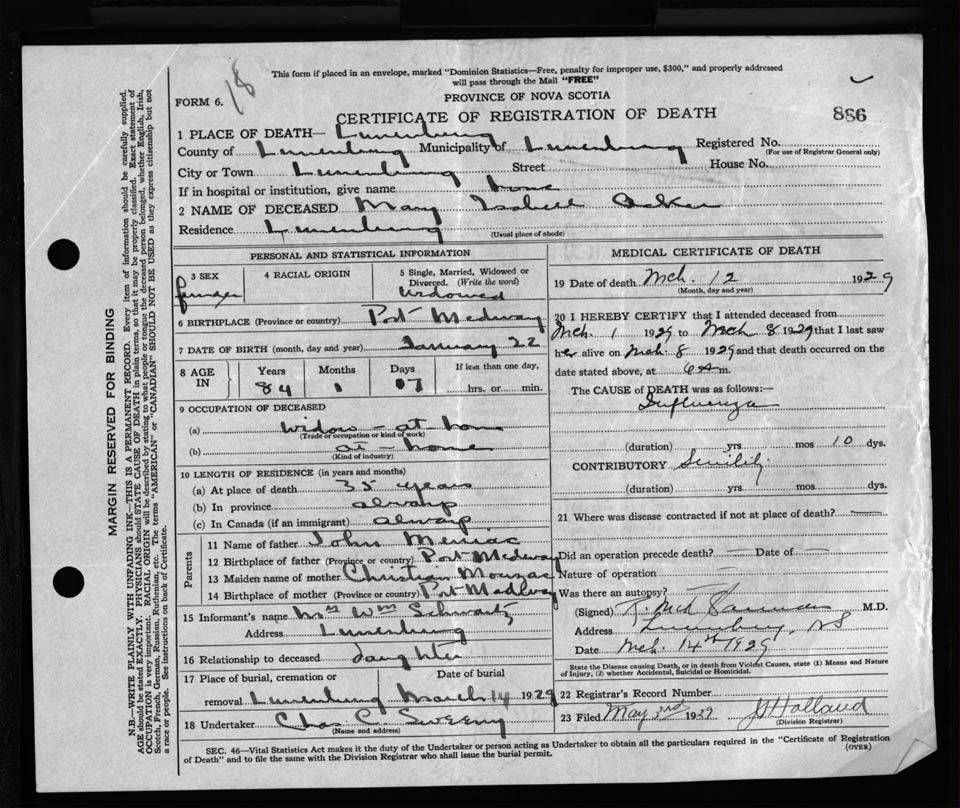 This form if placed in an envelope, marked "Dominion Statistics—Free, penalty for improper use, $300," and properly addressed
will pass through the Mail "FREE"
18
FORM 6.
PROVINCE OF NOVA SCOTIA
CERTIFICATE OF REGISTRATION OF DEATH
886
1 PLACE OF DEATH— Lunenburg
County of Lunenburg Municipality of Lunenburg Registered No.
(For use of Registrar General only)
City or Town Lunenburg Street House No.
If in hospital or institution, give name home
2 NAME OF DECEASED Mary Isabell Acker
Residence Lunenburg
(Usual place of abode)
PERSONAL AND STATISTICAL INFORMATION
3 SEX
4 RACIAL ORIGIN
5 Single, Married, Widowed or
Divorced. (Write the word)
Widowed
6 BIRTHPLACE (Province or country) Port Medway
7 DATE OF BIRTH (month, day and year) January 22
8 AGE IN
Years Months Days
If less than one day,
84 1
hrs. or min.
9 OCCUPATION OF DECEASED
(a) Widow - at home
(Trade or occupation or kind of work)
(b) at - home
(Kind of industry)
10 LENGTH OF RESIDENCE (in years and months)
(a) At place of death 35 years
(b) In province always
(c) In Canada (if an immigrant) always
Parents
11 Name of father John
12 Birthplace of father (Province or country) Port Medway
13 Maiden name of mother Christian
14 Birthplace of mother (Province or country) Port Medway
15 Informant's name Mrs Wm Schwartz
Address Lunenburg
16 Relationship to deceased daughter
17 Place of burial, cremation or Date of burial
removal Lunenburg March 14 1929
18 Undertaker Chas C. Sweeny
(Name and address)
MEDICAL CERTIFICATE OF DEATH
19 Date of death Mch. 12 1929
(Month, day and year)
20 I HEREBY CERTIFY that I attended deceased from
Mch. 1 1929 to Mch 8 1929 that I last saw
her alive on Mch. 8 1929 and that death occurred on the
date stated above, at 6 a m.
The CAUSE of DEATH was as follows:—
Influenza
(duration) yrs mos 10 dys.
CONTRIBUTORY Senility
(duration) yrs mos dys.
21 Where was disease contracted if not at place of death?
Did an operation precede death? — Date of —
Nature of operation
Was there an autopsy?
(Signed) M.D.
Address Lunenburg, NS
Date Mch. 14th 1929
State the Disease causing Death, or in death from Violent Causes, state (1) Means and Nature
of Injury, (2) whether Accidental, Suicidal or Homicidal.
22 Registrar's Record Number
23 Filed May 3rd 1929 Holland
(Division Registrar)
SEC. 46—Vital Statistics Act makes it the duty of the Undertaker or person acting as Undertaker to obtain all the particulars required in the "Certificate of Registration
of Death" and to file the same with the Division Registrar who shall issue the burial permit.
(OVER)
MARGIN RESERVED FOR BINDING
N.B.—WRITE PLAINLY WITH UNFADING INK—THIS IS A PERMANENT RECORD. Every item of information should be carefully supplied.
AGE should be stated EXACTLY. PHYSICIANS should STATE CAUSE OF DEATH in plain terms, so that it may be properly classified. Exact statement of
OCCUPATION is very important. RACIAL ORIGIN will be described by stating to what people or tongue the deceased person belonged, whether English, Irish,
Scotch, French, German, Russian, Ruthenian, etc. The terms "AMERICAN" or "CANADIAN" SHOULD NOT BE USED as they express citizenship but not
a race or people. See instructions on back of Certificate.